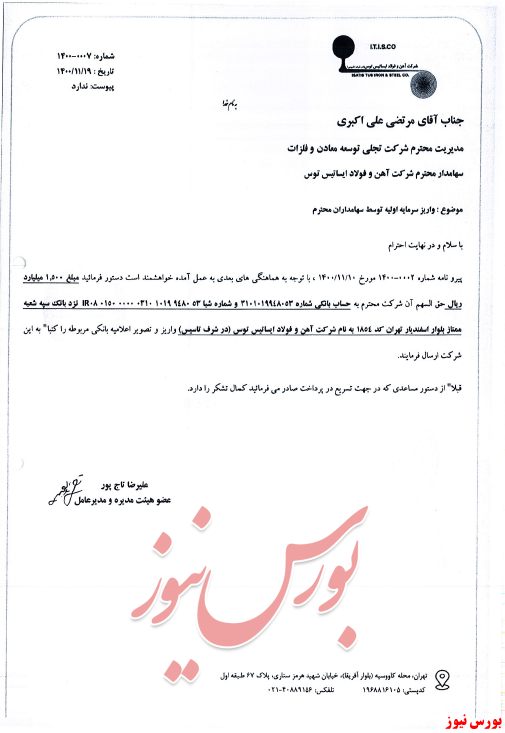 I.T.I.S.CO
شرکت آهن و فولاد ایساتیس توس
ISATIS TUS IRON & STEEL CO.
شماره: ۱۴۰۰-۰۰۰۷
تاریخ : ۱۴۰۰/۱۱/۱۹
پیوست: ندارد
بنام خدا
جناب آقای مرتضی علی اکبری
مدیریت محترم شرکت تجلی توسعه معادن و فلزات
سهامدار محترم شرکت آهن و فولاد ایساتیس توس
موضوع : واریز سرمایه اولیه توسط سهامداران محترم
با سلام و در نهایت احترام
پیرو نامه شماره ۱۴۰۰-۰۰۰۲ مورخ ۱۴۰۰/۱۱/۱۰ ، با توجه به هماهنگی های بعدی به عمل آمده خواهشمند است دستور فرمائید مبلغ ۱,۵۰۰ میلیارد
ریال حق السهم آن شرکت محترم به حساب بانکی شماره ۳۱۰۱۰۱۹۹۴۸۰۵۳ و شماره شبا IR۰۸ ۰۱۵۰ ۰۰۰۰ ۰۳۱۰ ۱۰۱۹ ۹۴۸۰ ۵۳ نزد بانک سپه شعبه
ممتاز بلوار اسفندیار تهران کد ۱۸۵۴ به نام شرکت آهن و فولاد ایساتیس توس (در شرف تاسیس) واریز و تصویر اعلامیه بانکی مربوطه را کتبا" به این
شرکت ارسال فرمایند.
قبلا" از دستور مساعدی که در جهت تسریع در پرداخت صادر می فرمائید کمال تشکر را دارد.
علیرضا تاج پور
عضو هیئت مدیره و مدیرعامل
بورس نیوز
تهران، محله کاووسیه (بلوار آفریقا)، خیابان شهید هرمز ستاری، پلاک ۶۷ طبقه اول
کدپستی: ۱۹۶۸۸۱۶۱۰۵ تلفکس: ۴۰۸۸۹۱۵۶-۰۲۱
بورس نیوز